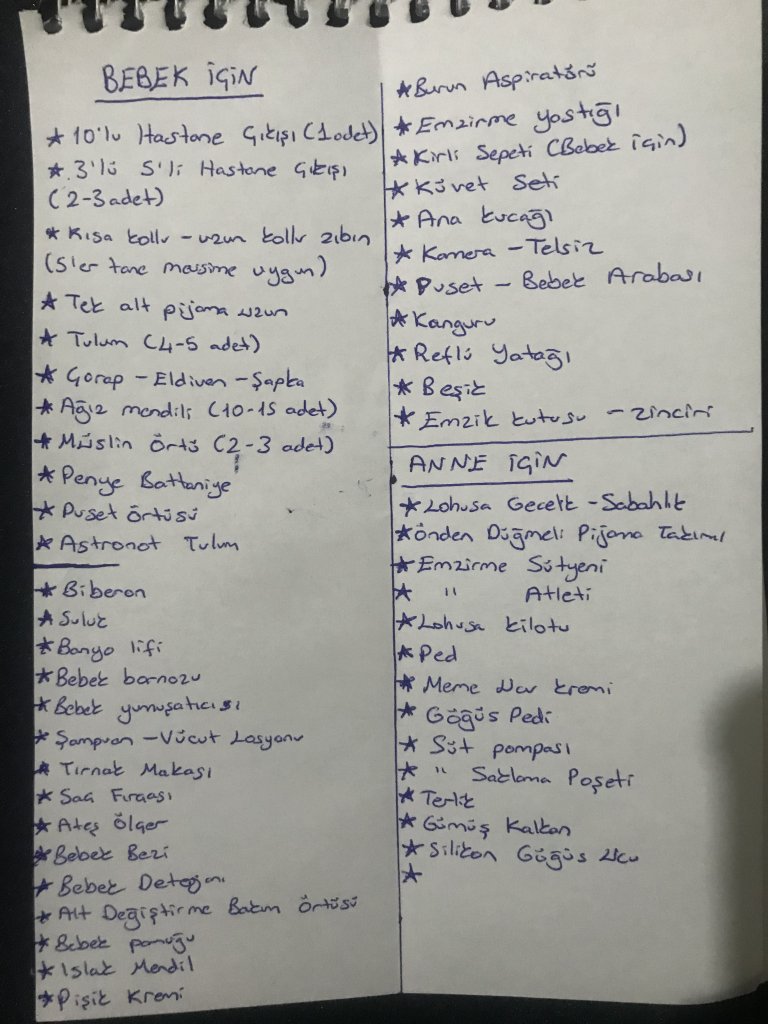 BEBEK İÇİN
★ 10'lu Hastane Çıkışı (1 adet)
★ 3'lü 5'li Hastane Çıkışı
(2-3 adet)
★ Kısa kollu - uzun kollu zıbın
(5'er tane mevsime uygun)
★ Tek alt pijama uzun
★ Tulum (4-5 adet)
★ Çorap - Eldiven - Şapka
★ Ağız mendili (10-15 adet)
★ Müslin Örtü (2-3 adet)
★ Penye Battaniye
★ Puset Örtüsü
★ Astronot Tulum
★ Biberon
★ Suluk
★ Banyo lifi
★ Bebek bornozu
★ Bebek yumuşatıcısı
★ Şampuan - Vücut Losyonu
★ Tırnak Makası
★ Saç Fırçası
★ Ateş Ölçer
★ Bebek Bezi
★ Bebek Deterjanı
★ Alt Değiştirme Bakım Örtüsü
★ Bebek pamuğu
★ Islak Mendil
★ Pişik Kremi
★ Burun Aspiratörü
★ Emzirme yostığı
★ Kirli Sepeti (Bebek için)
★ Küvet Seti
★ Ana kucağı
★ Kamera - Telsiz
★ Puset - Bebek Arabası
★ Kanguru
★ Reflü Yatağı
★ Beşik
★ Emzik kutusu - zinciri
ANNE İÇİN
★ Lohusa Gecelik - Sabahlık
★ Önden Düğmeli Pijama Takımı
★ Emzirme Sütyeni
★ " Atleti
★ Lohusa kilotu
★ Ped
★ Meme Ucu kremi
★ Göğüs Pedi
★ Süt pompası
★ " Saklama Poşeti
★ Terlik
★ Gümüş Kalkan
★ Silikon Göğüs Ucu
★